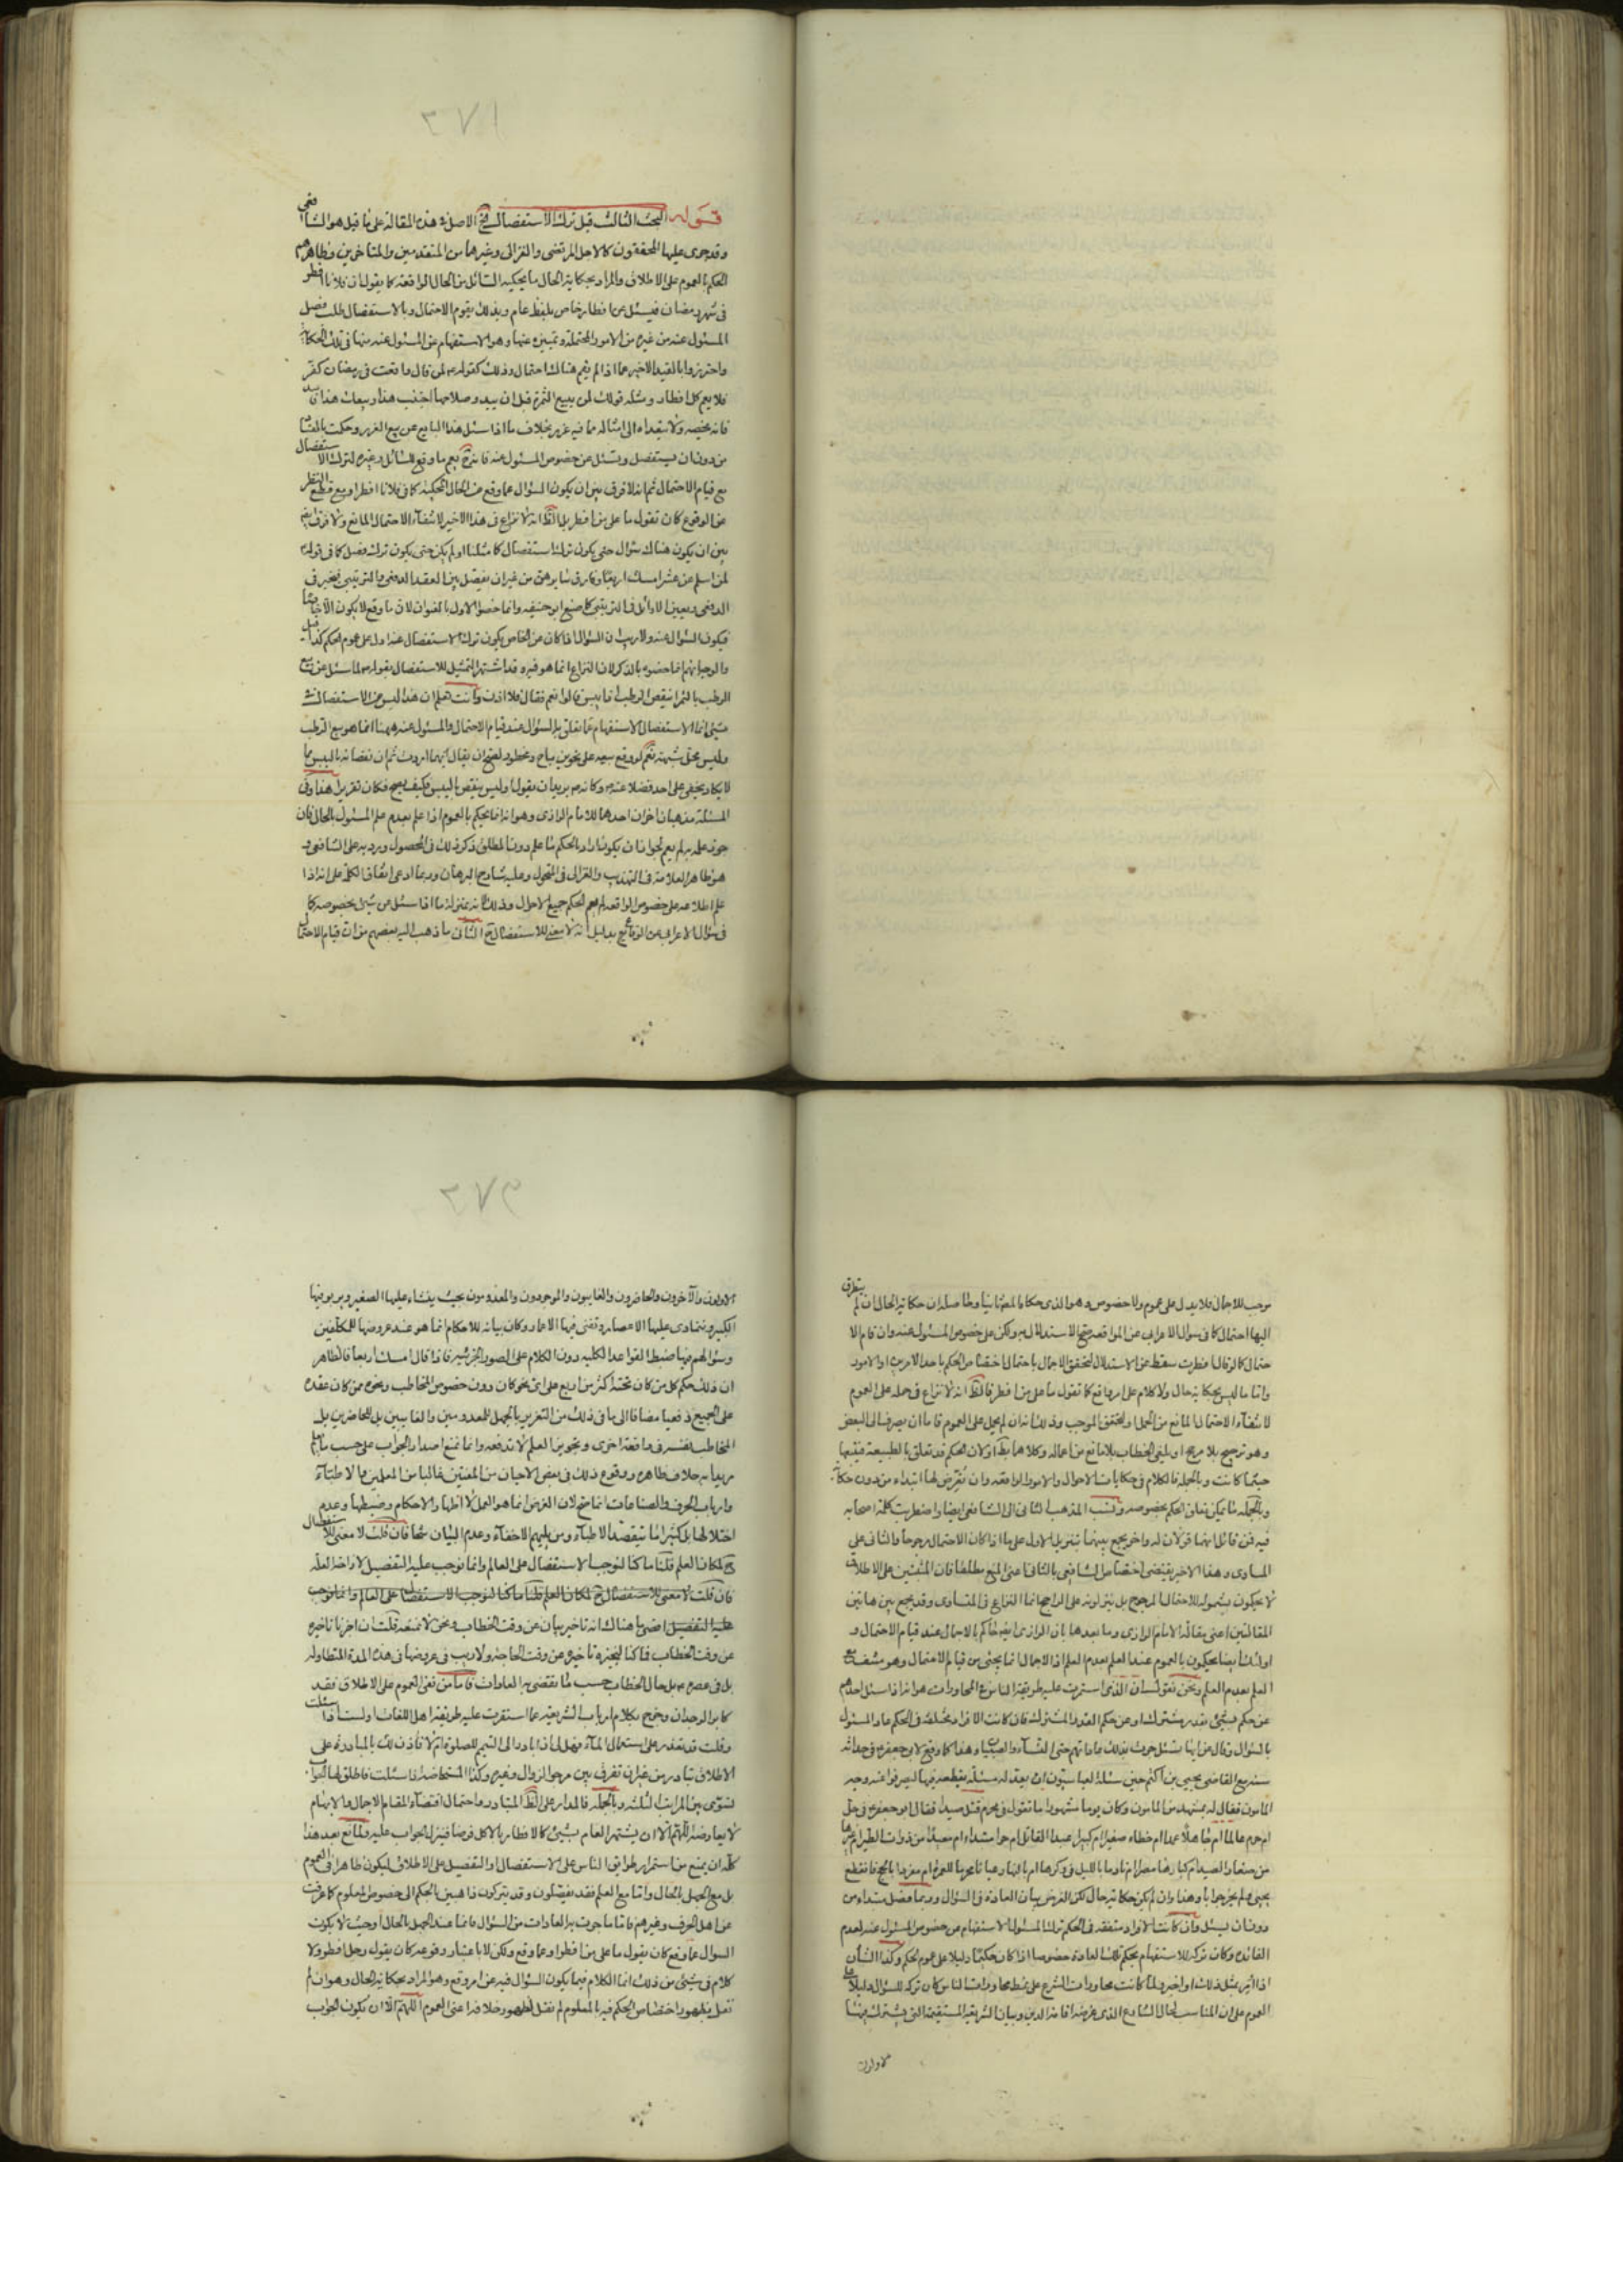 ١٧٢
قوله البحث الثالث قيل ترك الاستفصال الخ الاصل في هذه المقالة على ما قيل هو الشافعي
وقد جرى عليها المحققون كالاجل المرتضى والغزالي وغيرهما من المتقدمين والمتأخرين وظاهرهم
الحكم بالعموم على الاطلاق والمراد بحكاية الحال ما يحكيه السائل من الحال الواقعة كما يقول ان فلانا افطر
في شهر رمضان فيسئل عن افطار خاص بلفظ عام وبذلك يقوم الاحتمال وبالاستفصال طلب فصل
المسئول عنه من غيره من الامور المحتملة وتمييزه عنها وهو الاستفهام عن المسئول عنه منها في تلك الحكاية
واحترزوا بالقيد الاخير عما اذا لم يقم هناك احتمال وذلك كقوله لمن قال واقعت في رمضان كفر
فلا يعم كل افطار ومثله قولك لمن يبيع الثمرة قبل ان يبدو صلاحها اجتنب هذا وبيعك هذا فاسد
فانه يخصه ولا يتعداه الى امثاله مما فيه غرر بخلاف ما اذا سئل هذا البايع عن بيع الغرر وحكمت بالفساد
من دون ان يستفصل وتسئل عن خصوص المسئول عنه فانه ح يعم ما وقع للسائل وغيره لترك الاستفصال
مع قيام الاحتمال ثم انه لا فرق بين ان يكون السؤال عما وقع من الحال المحكية كما في فلانا افطر او مع قطع النظر
عن الوقوع كان تقول ما على من افطر بل الظ انه لا نزاع في هذا الاخير لانتفاء الاحتمال المانع ولا فرق ايضا
بين ان يكون هناك سؤال حتى يكون ترك استفصال كما مثلنا او لم يكن حتى يكون ترك فصل كما في قوله
لمن اسلم عن عشر امسك اربعا وفارق سايرهن من غير ان يفصل بين العقد الدفعي والترتيبي فيخير في
الدفعي ويعين الاوائل في الترتيبي كما صنع ابو حنيفة وانما خصوا الاول بالعنوان لان ما وقع لا يكون الا خاصا
فيكون السؤال عنه ولا ريب ان السؤال اذا كان عن الخاص يكون ترك الاستفصال عنه ادل على عموم الحكم كذا قيل
والوجه انهم انما خصوه بالذكر لان النزاع انما هو فيه وقد اشتهر التمثيل للاستفصال بقوله لما سئل عن بيع
الرطب بالتمر اينقص الرطب اذا يبس قالوا نعم فقال فلا اذن وانت تعلم ان هذا ليس من الاستفصال في
شيئ انما الاستفصال الاستفهام عما تعلق به السؤال عند قيام الاحتمال والمسئول عنه ههنا انما هو بيع الرطب
وليس محل شبهة نعم لو وقع بيعه على نحوين مباح ومحظور لصح ان يقال ايهما اردت ثم ان نقصانه باليبس مما
لا يكاد يخفى على احد فضلا عنه وكانه يريد ان يقول اوليس ينقص باليبس فكيف يصح فكان تقريرا هذا وفي
المسئلة مذهبان اخران احدهما للامام الرازي وهو انه انما يحكم بالعموم اذا علم بعدم علم المسئول بالحال فان
جوز علمه به لم يعم لجواز ان يكون اراد بالحكم ما علم دون المطلق ذكر ذلك في المحصول ورد به على الشافعي و
هو ظاهر العلامة في التهذيب والغزالي في المنخول وعليه شارح البرهان وربما ادعى اتفاق الكلمة على انه اذا
علم اطلاعه على خصوص الواقعة لم يعم الحكم جميع الاحوال وذلك لانه بمنزلة ما اذا سئل عن شيئ بخصوصه كما
في سؤال الاعرابي عن الوقايع بدليل انه لا معنى للاستفصال ح الثاني ما ذهب اليه بعضهم من ان قيام الاحتمال
موجب للاجمال فلا يدل على عموم ولا خصوص وهو الذي حكاه المصنف ثانيا وحاصله ان حكاية الحال ان لم يتطرق
اليها احتمال كما في سؤال الاعرابي عن المواقعة صح الاستدلال به ولكن على خصوص المسئول عنه وان قام الا
حتمال كما لو قال افطرت سقط عن الاستدلال لتحقق الاجمال باحتمال اختصاص الحكم باحد الامرين او الامور
واما ما ليس بحكاية حال ولا كلام على امر واقع كما تقول ما على من افطر فالظ انه لا نزاع في حمله على العموم
لانتفاء الاحتمال المانع من الحمل وتحقق الموجب وذلك انه ان لم يحمل على العموم فاما ان يصرف الى البعض
وهو ترجيح بلا مرجح او يلغى الخطاب بلا مانع من اعماله وكلاهما بط او لان الحكم قد تعلق بالطبيعة فيتبعها
حيثما كانت وبالجملة فالكلام في حكايات الاحوال والامور الواقعة وان تعرض لها ابتداء من دون حكاية
وبالجملة ما يمكن تعلق الحكم بخصوصه ونسب المذهب الثاني الى الشافعي ايضا واضطربت كلمة اصحابه
فيه فمن قائل انهما قولان له واخر يجمع بينهما بتنزيل الاول على ما اذا كان الاحتمال مرجوحا والثاني على
المساوي وهذا الاخير يقتضي اختصاص الشافعي بالثاني اعني المنع مطلقا فان المثبتين على الاطلاق
لا يحكون شموله للاحتمال المرجوح بل ينزلونه على الراجح انما النزاع في المتساوي وقد يجمع بين هاتين
المقالتين اعني مقالة الامام الرازي وما بعدها بان الرازي ايضا حاكم بالاجمال عند قيام الاحتمال و
اولئك ايضا يحكمون بالعموم عند العلم بعدم العلم اذ الاجمال انما يجئ من قيام الاحتمال وهو منتف مع
العلم بعدم العلم ونحن نقول ان الذي استمرت عليه طريقة الناس في المحاورات هو انه اذا سئل احدهم
عن حكم شيئ بقدر مشترك او عن حكم القدر المشترك فان كانت الافراد مختلفة في الحكم عاد المسئول
بالسؤال وقال عن ايها تسئل جرت بذلك عاداتهم حتى النساء والصبيان وهذا كما وقع لابي جعفر في حداثة
سنه مع القاضي يحيى بن اكثم حين سئله العباسيون ان يعد له مسئلة يقطعه فيها ليصرفوا عنه وجه
المامون فقال له بمشهد من المامون وكان يوما مشهودا ما تقول في محرم قتل صيدا فقال ابو جعفر في حل
ام حرم عالما ام جاهلا عمدا ام خطاء صغيرا ام كبيرا عبدا القاتل ام حرا مبتدأ ام معيدا من ذوات الطير ام غيرها
من صغار الصيد ام كبارها مصرا ام نادما بالليل في وكرها ام بالنهار عيانا محرما للعمرة ام مفردا بالحج فانقطع
يحيى ولم يحر جوابا وهذا وان لم يكن حكاية حال لكن الغرض بيان العادة في السؤال وربما فصل ابتداء من
دون ان يسئل وان كانت الافراد متفقة في الحكم ترك المسئول الاستفهام عن خصوص المسئول عنه لعدم
الفائدة وكان تركه للاستفهام بحكم تلك العادة خصوصا اذا كان حكيما دليلا على عموم الحكم وكذا الشأن
اذا اتى بمثل ذلك او اخبر ولما كانت محاورات الشرع على نمط محاورات الناس كان تركه للسؤال دليلا على
العموم على ان المناسب لحال الشارع الذي غرضه اقامة الدين وبيان الشريعة المستقيمة التي يشترك فيها
الاولون
٢٧٩
الاولون والآخرون والحاضرون والغايبون والموجودون والمعدومون بحيث ينشاء عليها الصغير ويربو فيها
الكبير وتتمادى عليها الاعصار وتفنى فيها الاعمار وكان بيانه للاحكام انما هو عند عروضها للمكلفين
وسؤالهم فيها ضبط القواعد الكلية دون الكلام على الصور الجزئية فاذا قال امسك اربعا فالظاهر
ان ذلك حكم كل من كان تحته أكثر من اربع على اي نحو كان دون خصوص المخاطب ونحوه ممن كان عقده
على الجميع دفعيا مضافا الى ما في ذلك من التغرير بالجهل للمعدومين والغايبين بل للحاضرين بل
المخاطب نفسه في واقعة اخرى وتجويز العلم لا تدفعه وانما تمنع اصدار الجواب على حسب ما يعلم
مريدا به خلاف ظاهره ووقوع ذلك في بعض الاحيان من المفتين غالبا من المعلمين والاطباء
وارباب الحرف والصناعات انما صح لان الغرض انما هو العمل لا اظهار الاحكام وضبطها وعدم
اختلالها بل كثيرا ما يقصد الاطباء ومن يليهم الاخفاء وعدم البيان شحا فان قلت لا معنى للاستفصال
ح لمكان العلم قلنا ما كنا لنوجب الاستفصال على العالم وانما نوجب عليه التفصيل لازاحة العلة
فان قلت لا معنى للاستفصال ح لمكان العلم قلنا ما كنا لنوجب الاستفصال على العالم وانما نوجب
عليه التفصيل اقصى ما هناك انه تاخير بيان عن وقت الخطاب ونحن لا نمنعه قلت ان اجزنا تاخيره
عن وقت الخطاب فما كنا لنجيزه تاخيره عن وقت الحاجة ولا ريب في عروضها في هذه المدة المتطاولة
بل في عصره بل حال الخطاب حسب ما تقضي به العادات فأما من نفى العموم على الاطلاق فقد
كابر الوجدان وخرج بكلام ارباب الشريعة عما استقرت عليه طريقة اهل اللغات اولست اذا سئلت
وقلت قد تعذر علي استعمال الماء فهل لي اذا بادر الى التيمم للصلوة ام لا فأذن لك بالمبادرة على
الاطلاق تبادر من غير ان تفرق بين مرجو الزوال وغيره وكذا المستحاضة اذا سئلت فاطلق لها الجواب
لتسوى بين المراتب الثلث وبالجملة فالمدار على الظ المتبادر واحتمال اقتضاء المقام الاجمال والابهام
لا يعارضه اللهم الا ان يشتهر العام بشيئ كالافطار بالاكل فرضا فينزل الجواب عليه والمانع بعد هذا
كله ان يمنع من استمرار طرايق الناس على الاستفصال او التفصيل على الاطلاق ليكون ظاهرا في العموم
بل مع الجهل بالحال واما مع العلم فقد يفصلون وقد يتركون ذاهبين بالحكم الى خصوص المعلوم كما عرفت
من اهل الحرف وغيرهم فاما ما جرت به العادات من السؤال فانما عند الجهل بالحال او حيث لا يكون
السؤال عما وقع كان يقول ما على من افطر او عما وقع ولكن لا باعتبار وقوعه كان يقول رجل افطر ولا
كلام في شيئ من ذلك انما الكلام فيما يكون السؤال فيه عن امر وقع وهو المراد بحكاية الحال وهو ان لم
نقل بظهور اختصاص الحكم فيه بالمعلوم لم نقل بظهور خلافه اعني العموم اللهم الا ان يكون الجواب